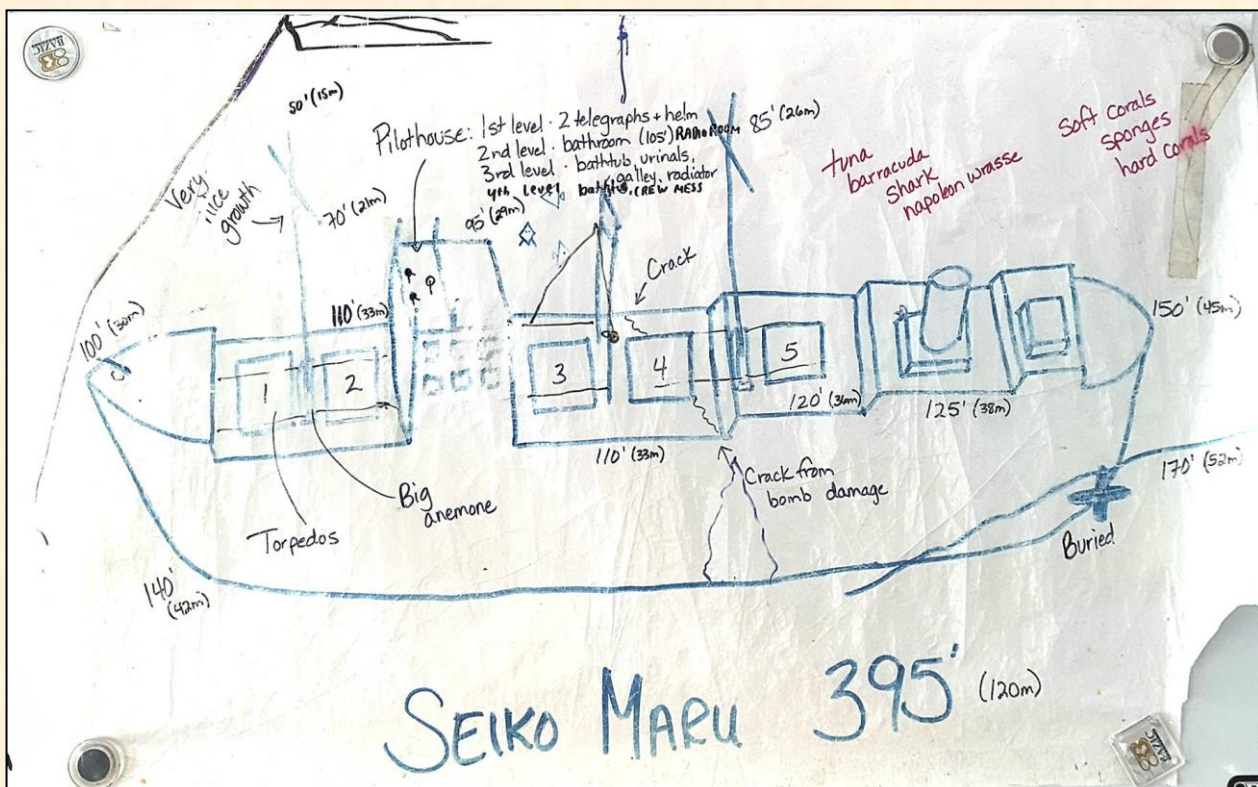 50' (15m)
Pilothouse: 1st level · 2 telegraphs + helm
2nd level · bathroom (105') RADIO ROOM
3rd level · bathtub, urinals,
galley, radiator
4th level bathtub, CREW MESS
85' (26m)
tuna
barracuda
shark
napoleon wrasse
Soft corals
sponges
hard corals
Very
nice
growth
70' (21m)
95' (29m)
Crack
100' (30m)
110' (33m)
150' (45m)
1
2
3
4
5
120' (36m)
125' (38m)
110' (33m)
170' (52m)
Crack from
bomb damage
Big
anemone
Torpedos
Buried
140'
(42m)
SEIKO MARU 395' (120m)
BAZIC
BAZIC